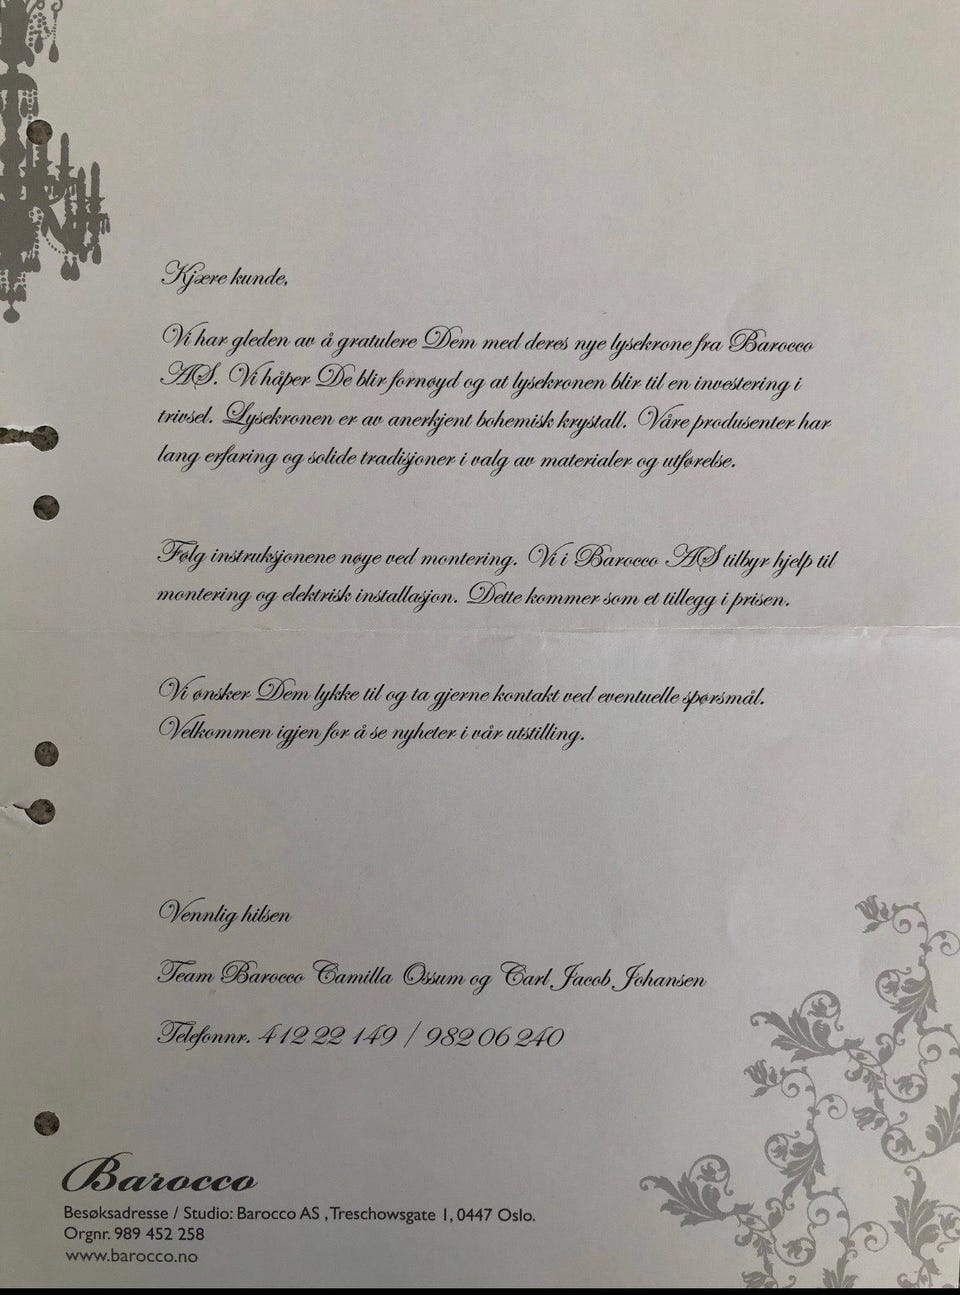 Kjære kunde,
Vi har gleden av å gratulere Dem med deres nye lysekrone fra Barocco
AS. Vi håper De blir fornøyd og at lysekronen blir til en investering i
trivsel. Lysekronen er av anerkjent bohemisk krystall. Våre produsenter har
lang erfaring og solide tradisjoner i valg av materialer og utførelse.
Følg instruksjonene nøye ved montering. Vi i Barocco AS tilbyr hjelp til
montering og elektrisk installasjon. Dette kommer som et tillegg i prisen.
Vi ønsker Dem lykke til og ta gjerne kontakt ved eventuelle spørsmål.
Velkommen igjen for å se nyheter i vår utstilling.
Vennlig hilsen
Team Barocco Camilla Ossum og Carl Jacob Johansen
Telefonnr. 412 22 149 / 982 06 240
Barocco
Besøksadresse / Studio: Barocco AS , Treschowsgate 1, 0447 Oslo.
Orgnr. 989 452 258
www.barocco.no